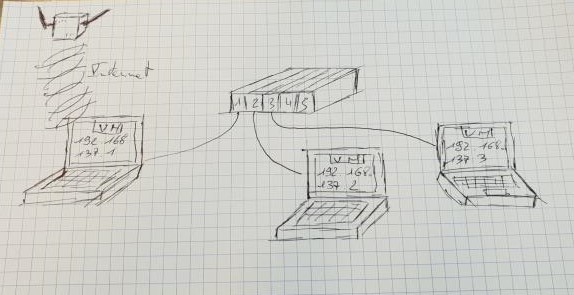 Internet
1 2 3 4 5
VM1
192 168
137 1
VM1
192 168.
137 2
VM1
192 168.
137 3